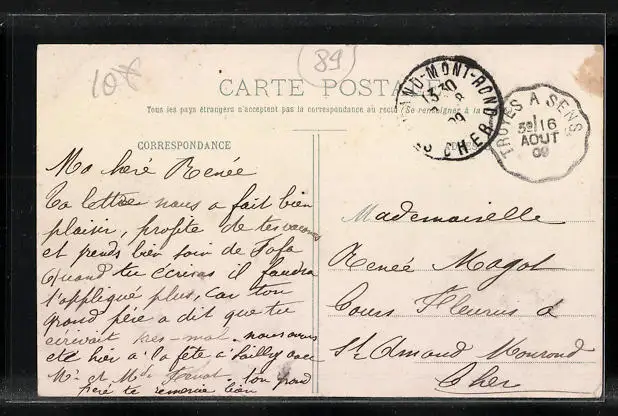 10x
89
CARTE POSTALE
Tous les pays étrangers n'acceptent pas la correspondance au recto (Se renseigner à la
CORRESPONDANCE
AND-MONT-ROND
13 30
8
09
CHER
TROYES A SENS
1
16
AOUT
09
Ma chère Renée
Ta lettre nous a fait bien
plaisir, profite de tes vacances
et prends bien soin de Fofa
Quand tu ecriras il faudra
t'appliqué plus, car ton
grand père a dit que tu
écrivait très-mal. nous avons
eté hier à la fète à Pailly avec
Mr et Mde ton grand
père te remercie bien
Mademoiselle
Renée Magot
Cours Fleurus à
St Amand Monrond
Cher